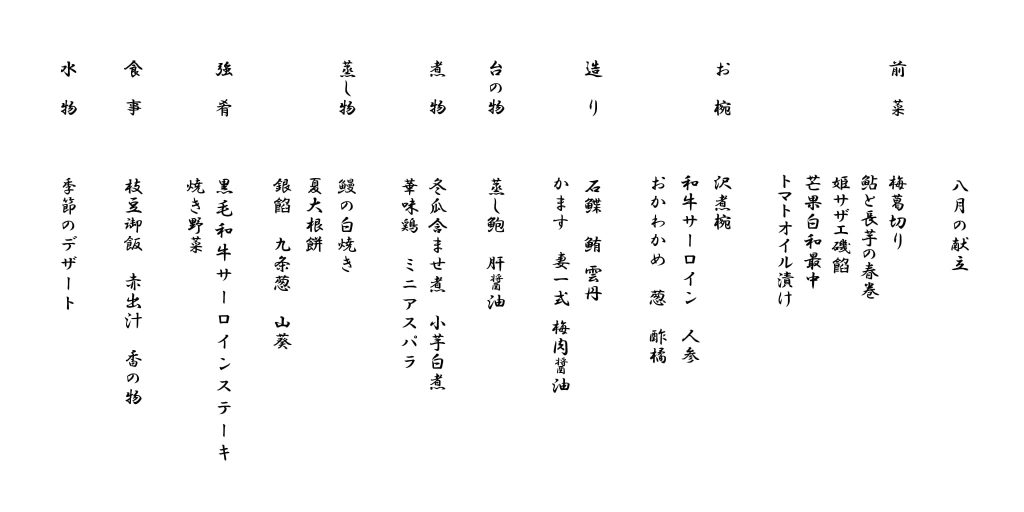 八月の献立
前 菜
梅葛切り
鮎と長芋の春巻
姫サザエ磯餡
芒果白和最中
トマトオイル漬け
お 椀
沢煮椀
和牛サーロイン 人参
おかわかめ 葱 酢橘
造 り
石鰈 鮪 雲丹
かます 妻一式 梅肉醤油
台の物
蒸し鮑 肝醤油
煮 物
冬瓜含ませ煮 小芋白煮
華味鶏 ミニアスパラ
蒸し物
鰻の白焼き
夏大根餅
銀餡 九条葱 山葵
強 肴
黒毛和牛サーロインステーキ
焼き野菜
食 事
枝豆御飯 赤出汁 香の物
水 物
季節のデザート